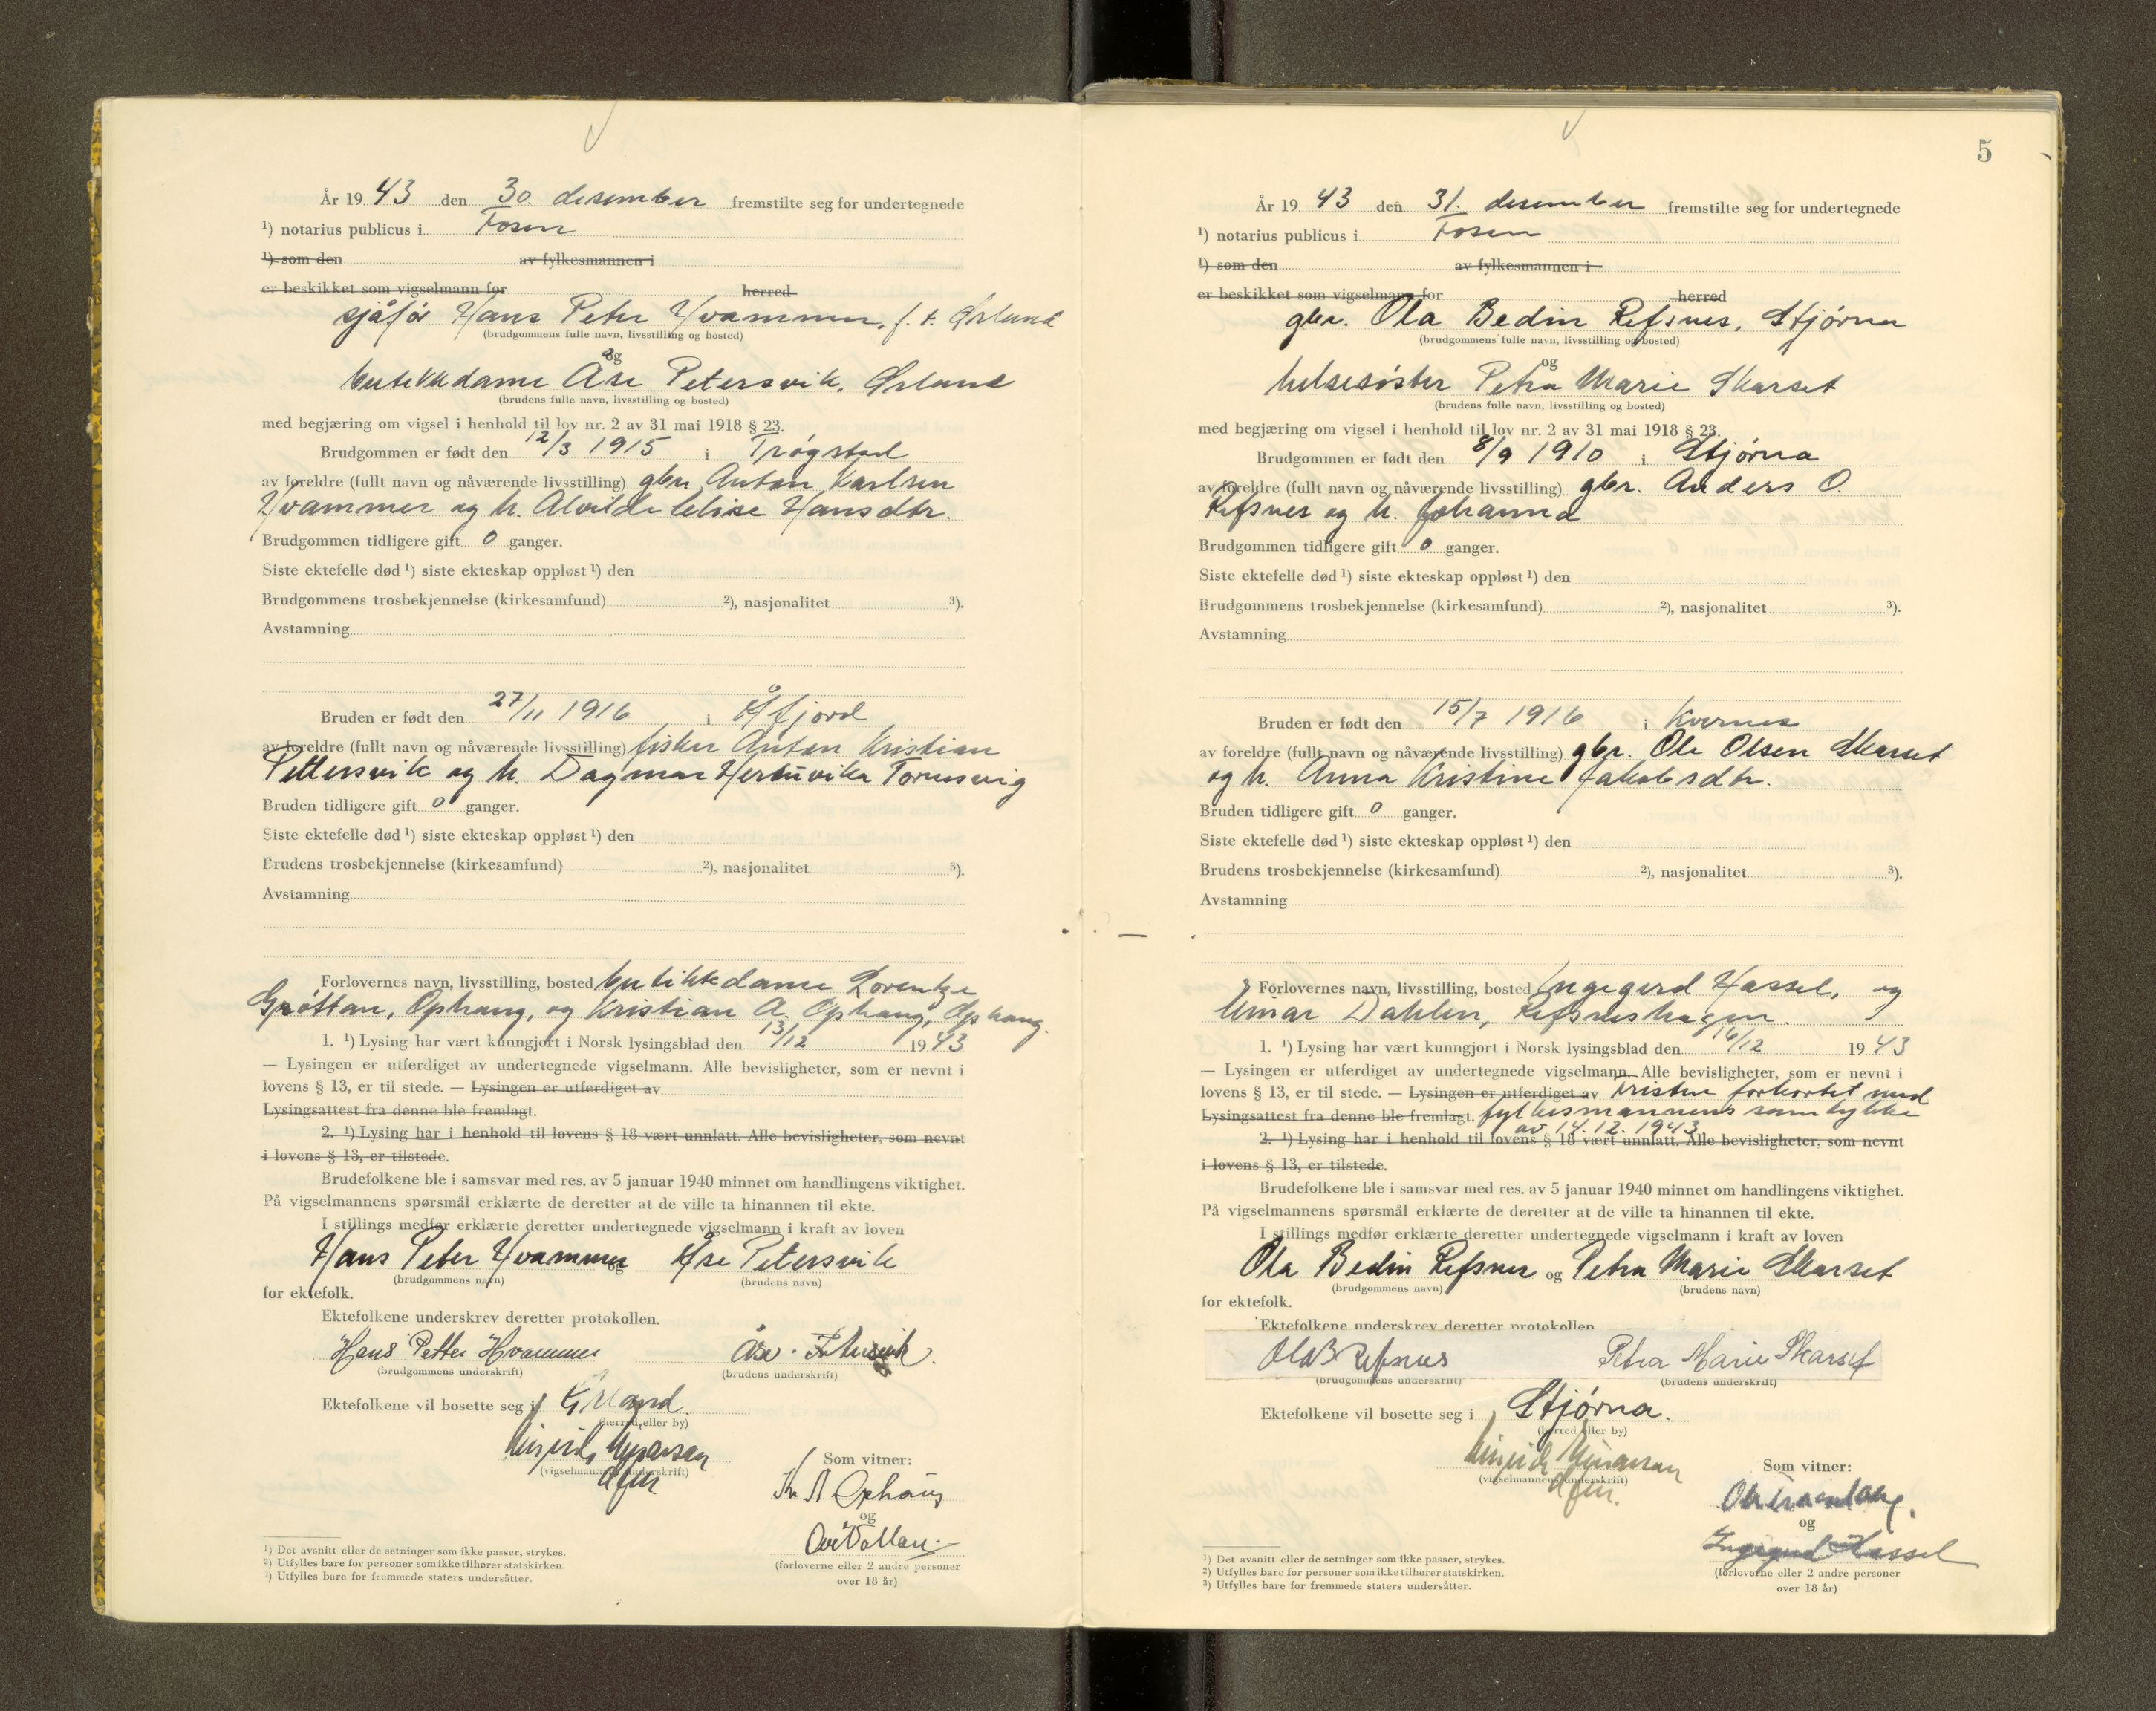 År 19 43 den 30. desember fremstilte seg for undertegnede
¹) notarius publicus i Fosen
¹) som den av fylkesmannen i
er beskikket som vigselmann for herred
sjåfør Hans Peter Hvammer, f. t. Ørland
(brudgommens fulle navn, livsstilling og bosted)
og
butikkdame Åse Petersvik, Ørland
(brudens fulle navn, livsstilling og bosted)
med begjæring om vigsel i henhold til lov nr. 2 av 31 mai 1918 § 23.
Brudgommen er født den 12/3 1915 i Trøgstad
av foreldre (fullt navn og nåværende livsstilling) gbr. Anton Karlsen
Hvammer og h. Alvilde Elise Hansdtr.
Brudgommen tidligere gift 0 ganger.
Siste ektefelle død ¹) siste ekteskap oppløst ¹) den
Brudgommens trosbekjennelse (kirkesamfund) ²), nasjonalitet ³).
Avstamning
Bruden er født den 27/11 1916 i Åfjord
av foreldre (fullt navn og nåværende livsstilling) fisker Anton Kristian
Pettersvik og h. Dagmar
Bruden tidligere gift 0 ganger.
Siste ektefelle død ¹) siste ekteskap oppløst ¹) den
Brudens trosbekjennelse (kirkesamfund) ²), nasjonalitet ³).
Avstamning
Forlovernes navn, livsstilling, bosted butikkdame Lorentze
Grøttan, Ophaug, og Kristian A. Ophaug, Ophaug.
1. ¹) Lysing har vært kunngjort i Norsk lysingsblad den 13/12 19 43
— Lysingen er utferdiget av undertegnede vigselmann. Alle bevisligheter, som er nevnt i
lovens § 13, er til stede. — Lysingen er utferdiget av
Lysingsattest fra denne ble fremlagt.
2. ¹) Lysing har i henhold til lovens § 18 vært unnlatt. Alle bevisligheter, som nevnt
i lovens § 13, er tilstede.
Brudefolkene ble i samsvar med res. av 5 januar 1940 minnet om handlingens viktighet.
På vigselmannens spørsmål erklærte de deretter at de ville ta hinannen til ekte.
I stillings medfør erklærte deretter undertegnede vigselmann i kraft av loven
Hans Peter Hvammer og Åse Petersvik
(brudgommens navn) (brudens navn)
for ektefolk.
Ektefolkene underskrev deretter protokollen.
Hans Petter Hvammer Åse Petersvik.
(brudgommens underskrift) (brudens underskrift)
Ektefolkene vil bosette seg i
(herred eller by)
(vigselmannens underskrift)
dfm.
Som vitner:
Kr A Ophaug
og
(forloverne eller 2 andre personer
over 18 år)
¹) Det avsnitt eller de setninger som ikke passer, strykes.
²) Utfylles bare for personer som ikke tilhører statskirken.
³) Utfylles bare for fremmede staters undersåtter.
5
År 19 43 den 31. desember fremstilte seg for undertegnede
¹) notarius publicus i Fosen
¹) som den av fylkesmannen i
er beskikket som vigselmann for herred
gbr. Ola Bedin Refsnes, Stjørna
(brudgommens fulle navn, livsstilling og bosted)
og
helsesøster Petra Marie Skarset
(brudens fulle navn, livsstilling og bosted)
med begjæring om vigsel i henhold til lov nr. 2 av 31 mai 1918 § 23.
Brudgommen er født den 8/9 1910 i Stjørna
av foreldre (fullt navn og nåværende livsstilling) gbr. Anders O.
Refsnes og h. Johanna
Brudgommen tidligere gift 0 ganger.
Siste ektefelle død ¹) siste ekteskap oppløst ¹) den
Brudgommens trosbekjennelse (kirkesamfund) ²), nasjonalitet ³).
Avstamning
Bruden er født den 15/7 1916 i Kvernes
av foreldre (fullt navn og nåværende livsstilling) gbr. Ole Olsen Skarset
og h. Anna Kristine Jakobsdtr.
Bruden tidligere gift 0 ganger.
Siste ektefelle død ¹) siste ekteskap oppløst ¹) den
Brudens trosbekjennelse (kirkesamfund) ²), nasjonalitet ³).
Avstamning
Forlovernes navn, livsstilling, bosted Ingegerd Hassel, og
Einar Dahlen, Refsneshagen.
1. ¹) Lysing har vært kunngjort i Norsk lysingsblad den 16/12 19 43
— Lysingen er utferdiget av undertegnede vigselmann. Alle bevisligheter, som er nevnt i
lovens § 13, er til stede. — Lysingen er utferdiget av Fristen forkortet med
Lysingsattest fra denne ble fremlagt. fylkesmannens samtykke
av 14.12.1943
2. ¹) Lysing har i henhold til lovens § 18 vært unnlatt. Alle bevisligheter, som nevnt
i lovens § 13, er tilstede.
Brudefolkene ble i samsvar med res. av 5 januar 1940 minnet om handlingens viktighet.
På vigselmannens spørsmål erklærte de deretter at de ville ta hinannen til ekte.
I stillings medfør erklærte deretter undertegnede vigselmann i kraft av loven
Ola Bedin Refsnes og Petra Marie Skarset
(brudgommens navn) (brudens navn)
for ektefolk.
Ektefolkene underskrev deretter protokollen
Ola B Refsnes Petra Marie Skarset
(brudgommens underskrift) (brudens underskrift)
Ektefolkene vil bosette seg i Stjørna.
(herred eller by)
(vigselmannens underskrift)
dfm.
Som vitner:
og
Ingegerd Hassel
(forloverne eller 2 andre personer
over 18 år)
¹) Det avsnitt eller de setninger som ikke passer, strykes.
²) Utfylles bare for personer som ikke tilhører statskirken.
³) Utfylles bare for fremmede staters undersåtter.